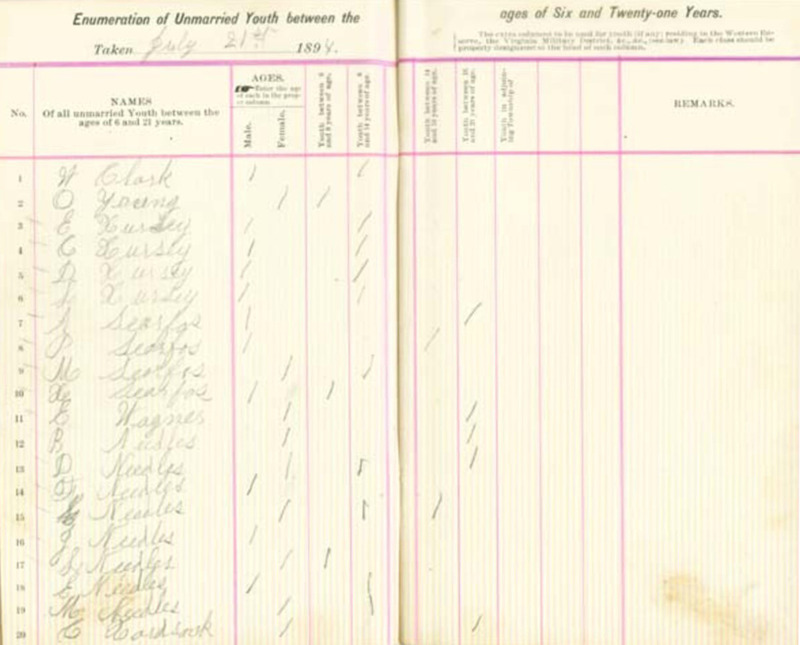 Enumeration of Unmarried Youth between the ages of Six and Twenty-one Years.
Taken July 21st 1894.
The extra columns to be used for youth (if any) residing in the Western Reserve, the Virginia Military District, &c., &c., (see law). Each class should be properly designated at the head of each column.
No.
NAMES
Of all unmarried Youth between the ages of 6 and 21 years.
AGES.
Enter the age of each in the proper column
Male.
Female.
Youth between 6 and 8 years of age.
Youth between 8 and 14 years of age.
Youth between 14 and 16 years of age.
Youth between 16 and 21 years of age.
Youth in adjoining Township of
REMARKS.
1 W Clark / /
2 O Young / /
3 E / /
4 C / /
5 D / /
6 / /
7 / /
8 / /
9 M / /
10 / /
11 E Wagner / /
12 B Needles / /
13 D Needles / / /
14 Needles /
15 Needles / / /
16 Needles /
17 Needles / /
18 E Needles / /
19 M Needles / /
20 C / /